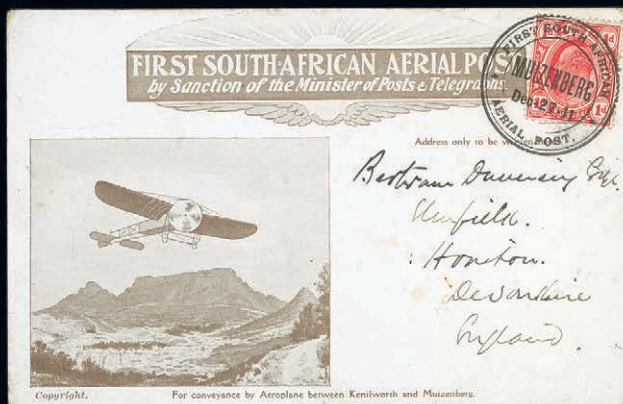 FIRST SOUTH-AFRICAN AERIAL POST
by Sanction of the Minister of Posts & Telegraphs.
FIRST SOUTH AFRICAN
MUIZENBERG
Dec 27.11
AERIAL POST.
1d
Address only to be written
Bertram Esqr.
Honiton.
Devonshire
England.
Copyright.
For conveyance by Aeroplane between Kenilworth and Muizenberg.